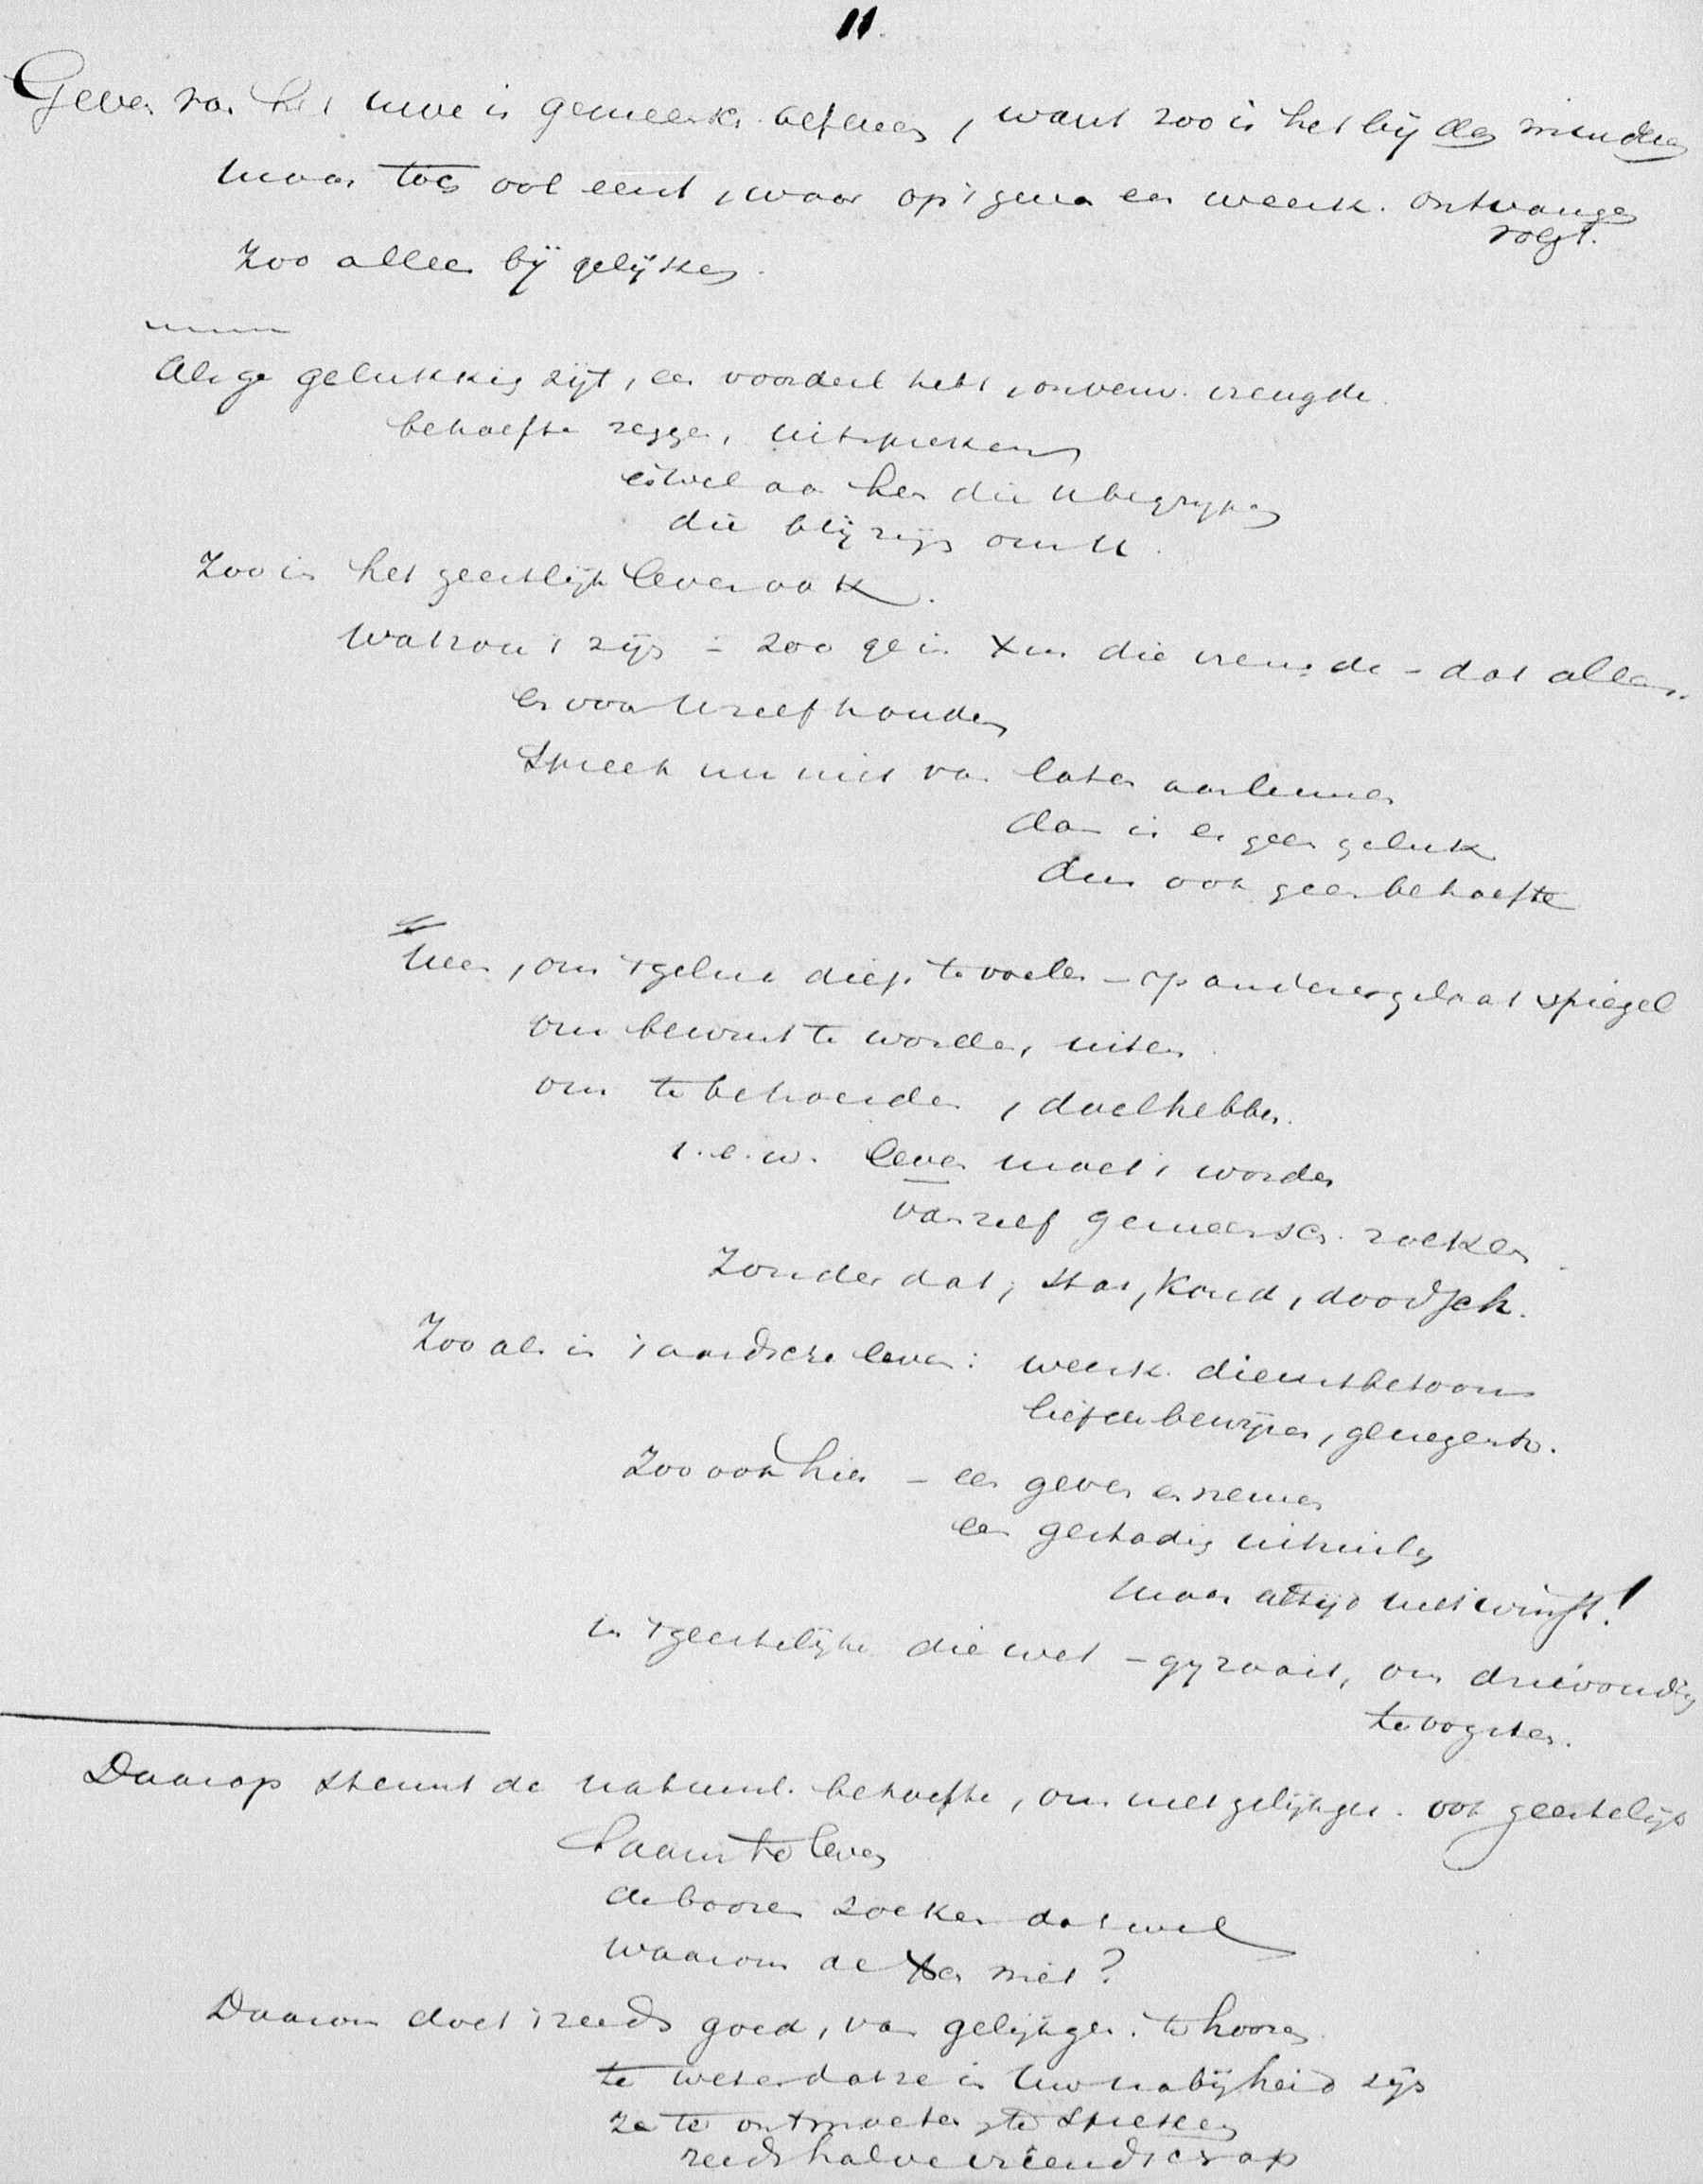 11.
Geven van het uwe is gemeensch. oefenen, want zoo is het bij den vriendten
maar toch ook eerst, waar op 't geven een wederk. ontvangen
volgt.
Zoo alleen bij gelijken.
Als ge gelukkig zijt, een voordeel hebt, onverw. vreugde.
behoefte zeggen, uitspreken
en wel aan hen die U begrijpen
die blij zijn om U.
Zoo is het geestlijk leven ook.
Wat zou 't zijn - zoo ge in Xus die vreugde - dat alles.
en voor U zelf houden
Spreek nu niet van later aanleeren
dan is er geen geluk
dus ook geen behoefte
Neen, om 't geluk diep te voelen - op anderer gelaat spiegel
om bewust te worden, uiten.
om te behouden, doel hebben.
t.e.w. leven moet 't worden
van zelf gemeensch. zoeken.
Zonder dat, star, koud, doodsch.
Zoo als in 't aardsche leven: wederk. dienstbetoon
liefdebewijzen, genegenh.
Zoo ook hier - een geven en nemen
een gestadig uitruilen
maar altijd met winst!
In 't geestelijke die wet - gij zaait, om drievoudig
te oogsten.
Daarop steunt de natuurl. behoefte, om met gelijkgez. ook geestelijk
saam te leven
de boozen zoeken dat wel
waarom de Xen niet?
Daarom doet 't reeds goed, van gelijkgez. te hooren.
te weten dat ze in Uw nabijheid zijn
ze te ontmoeten, te spreken
reeds halve vriendschap